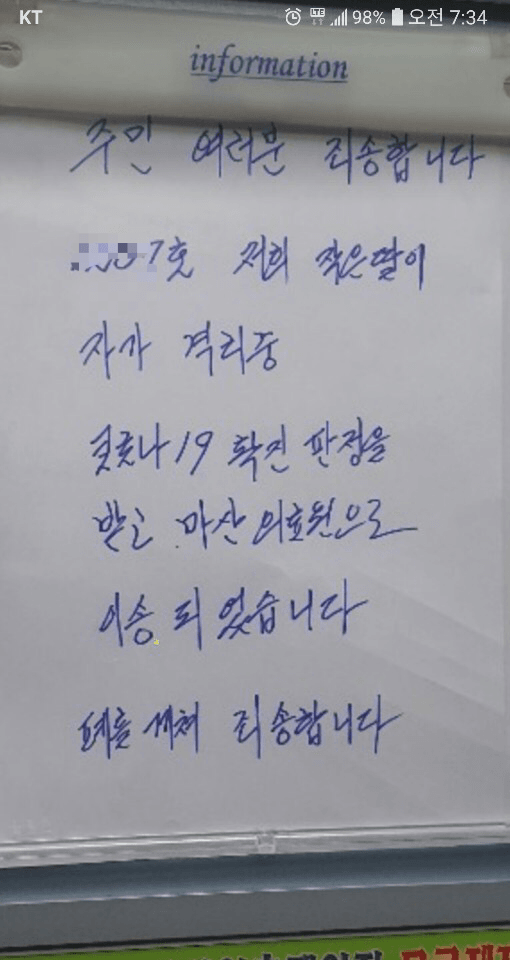 KT LTE 98% 오전 7:34
information
주민 여러분 죄송합니다
7호 저희 작은딸이
자가 격리중
코로나19 확진 판정을
받고 마산의료원으로
이송 되었습니다
폐를 끼쳐 죄송합니다